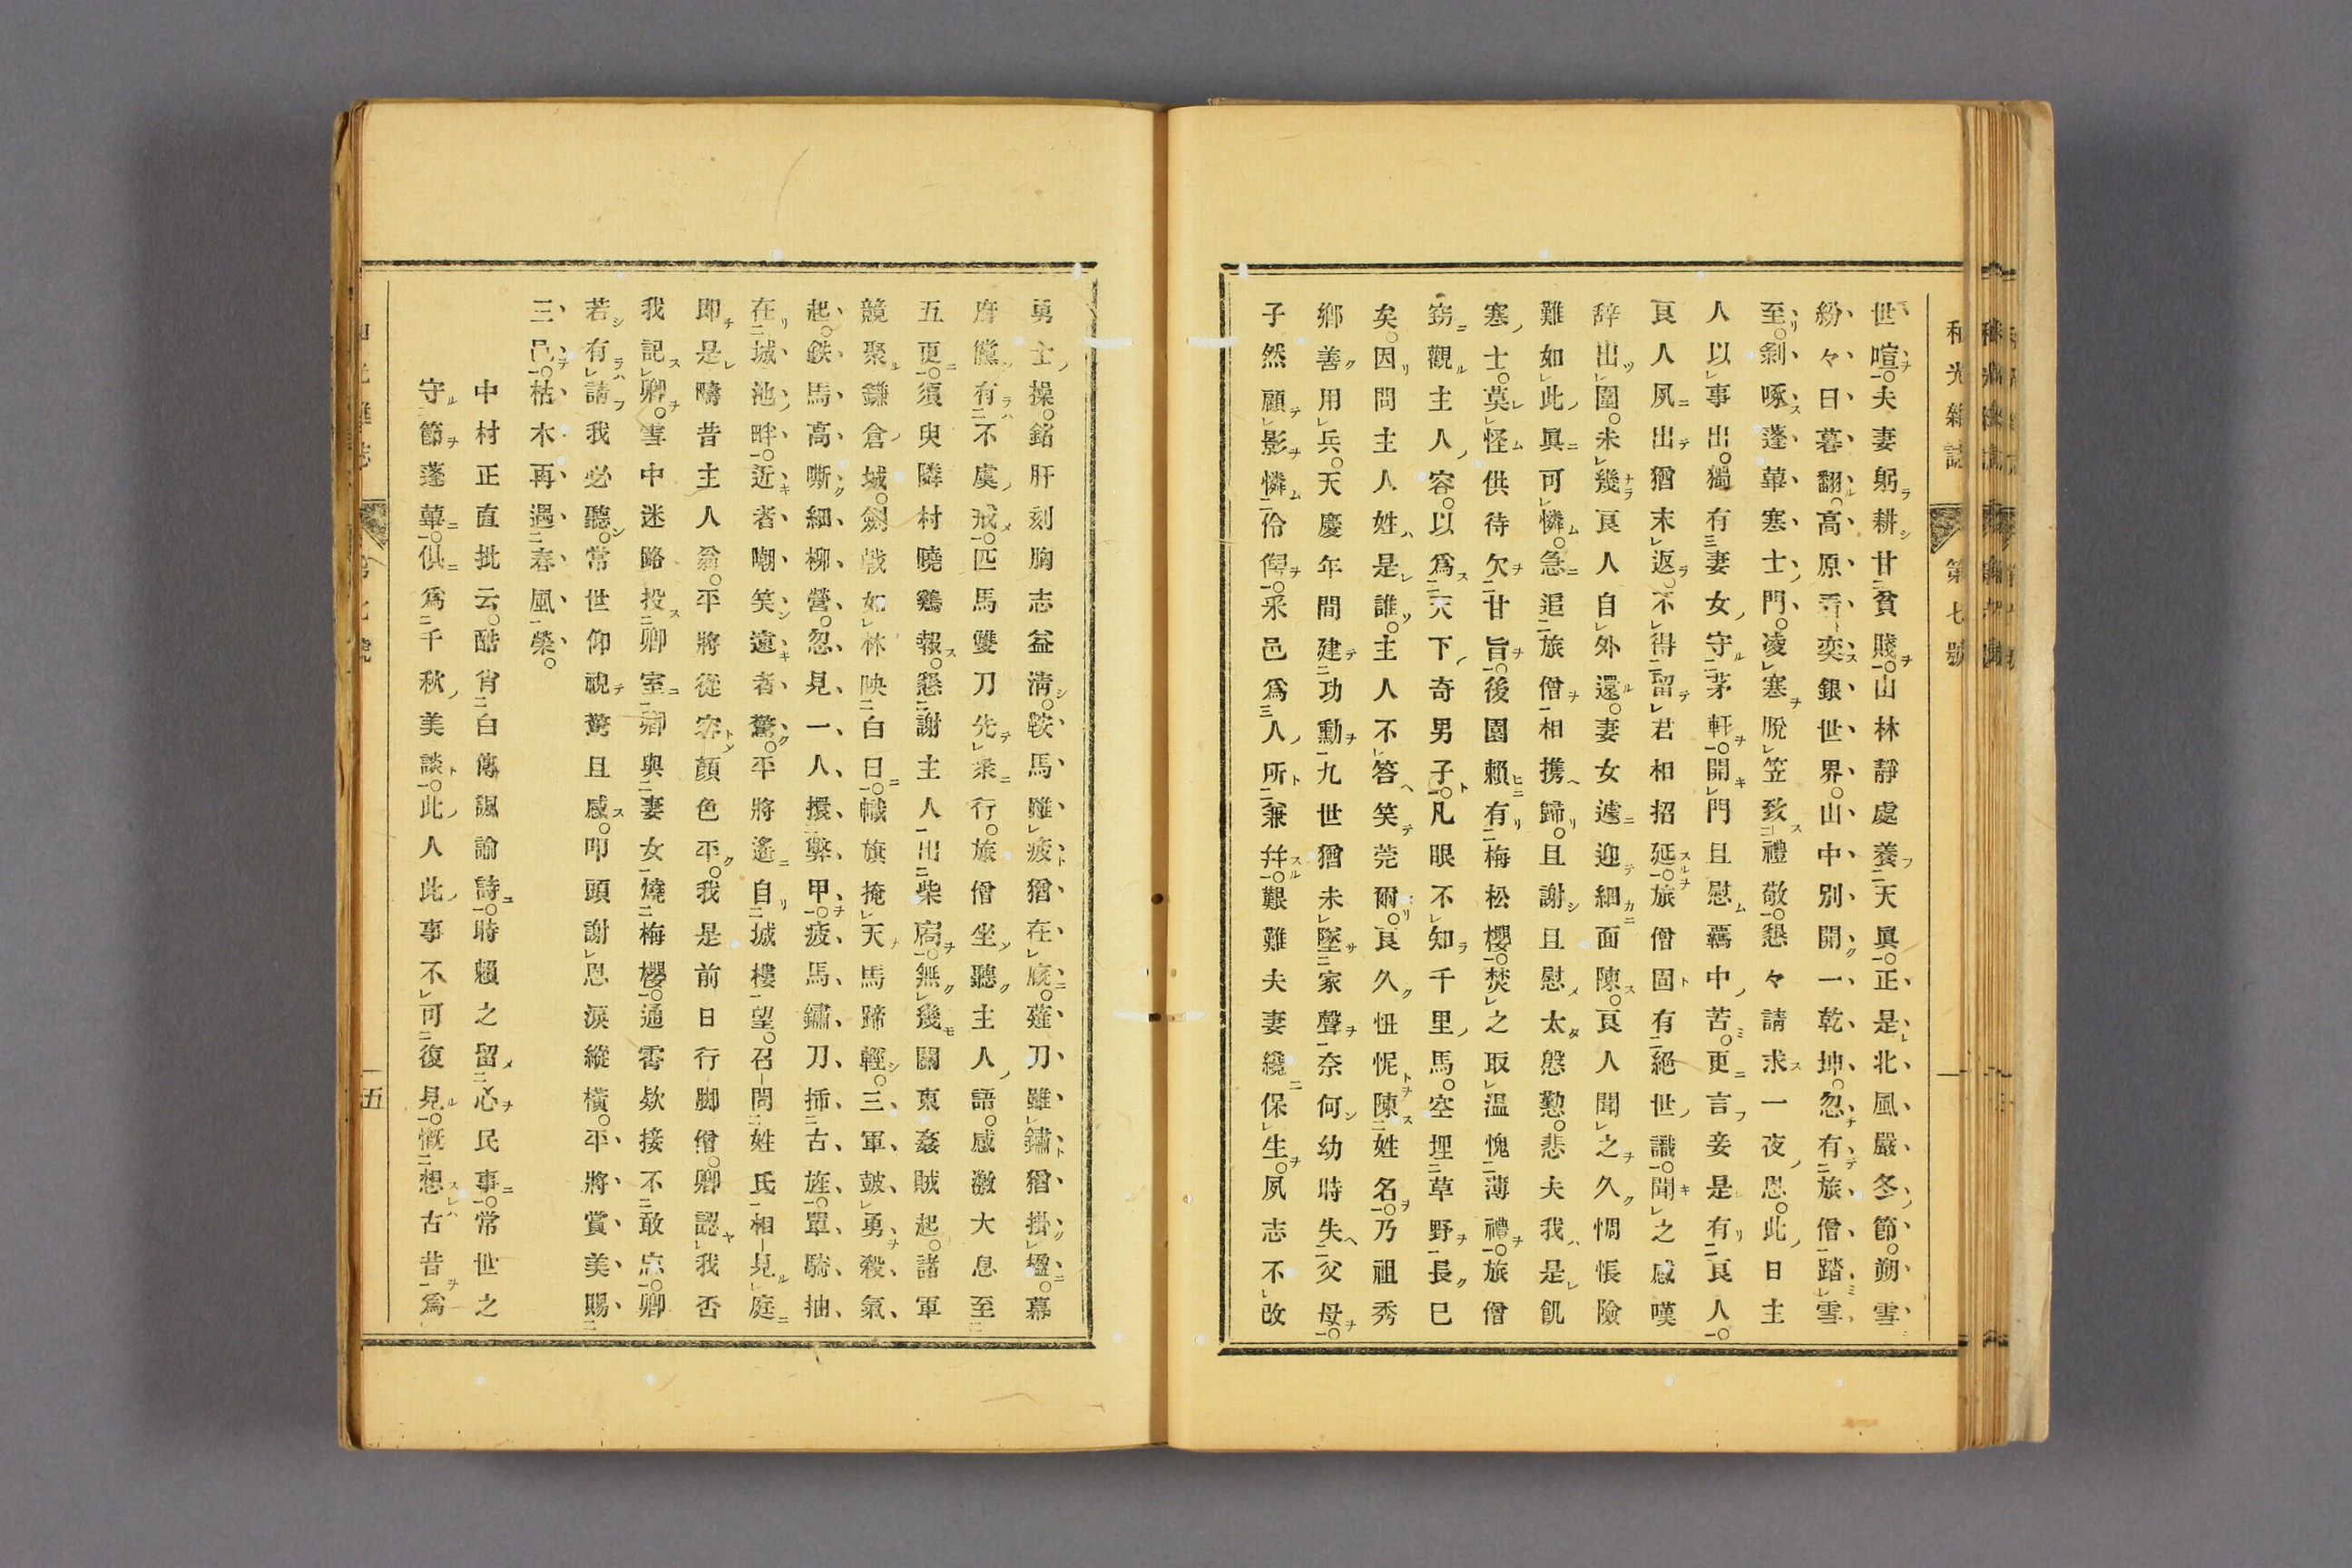 和光雜誌　第七號
世喧。夫妻躬耕甘貧賤。山林靜處養天眞。正是北風嚴冬節。朔雪
紛々日暮翻。高原看奕銀世界。山中別開一乾坤。忽有旅僧踏雪
至。剝啄蓬蓽寒士門。凌寒脫笠致禮敬。懇々請求一夜恩。此日主
人以事出。獨有妻女守茅軒。開門且慰羈中苦。更言妾是有良人。
良人夙出猶未返。不得留君相招延。旅僧固有絕世識。聞之感嘆
辞出圍。未幾良人自外還。妻女遽迎細面陳。良人聞之久惆悵險
難如此眞可憐。急追旅僧相携歸。且謝且慰太慇懃。悲夫我是飢
寒士。莫怪供待欠甘旨。後園賴有梅松櫻。焚之取溫愧薄禮。旅僧
窮觀主人容。以爲天下奇男子。凡眼不知千里馬。空埋草野長已
矣。因問主人姓是誰。主人不答笑莞爾。良久忸怩陳姓名。乃祖秀
鄉善用兵。天慶年間建功勳。九世猶未墜家聲。奈何幼時失父母。
孑然顧影憐伶俜。采邑爲人所兼幷。艱難夫妻纔保生。夙志不改
勇士操。銘肝刻胸志益淸。鞍馬雖疲猶在廐。薙刀雖鏽猶掛楹。幕
府儻有不虞戒。匹馬雙刀先衆行。旅僧坐聽主人語。感激大息至
五更。須臾隣村曉鷄報。懇謝主人出柴扃。無幾關東姦賊起。諸軍
競聚鎌倉城。劍戟如林映白日。幟旗掩天馬蹄輕。三軍皷勇殺氣
起。鉄馬高嘶細柳營。忽見一人擐弊甲。疲馬鏽刀揷古旌。單騎抽
在城池畔。近者嘲笑遠者驚。平將遙自城樓望。召問姓氏相見庭
即是疇昔主人翁。平將從容顏色平。我是前日行脚僧。卿認我否
我記卿。雪中迷路投卿室。卿與妻女燒梅櫻。通霄欵接不敢忘。卿
若有請我必聽。常世仰視驚且感。叩頭謝恩淚縱橫。平將賞美賜
三邑。枯木再遇春風榮。
中村正直批云。酷肖白傳諷諭詩。時賴之留心民事。常世之
守節蓬蓽。俱爲千秋美談。此人此事不可復見。慨想古昔爲
五